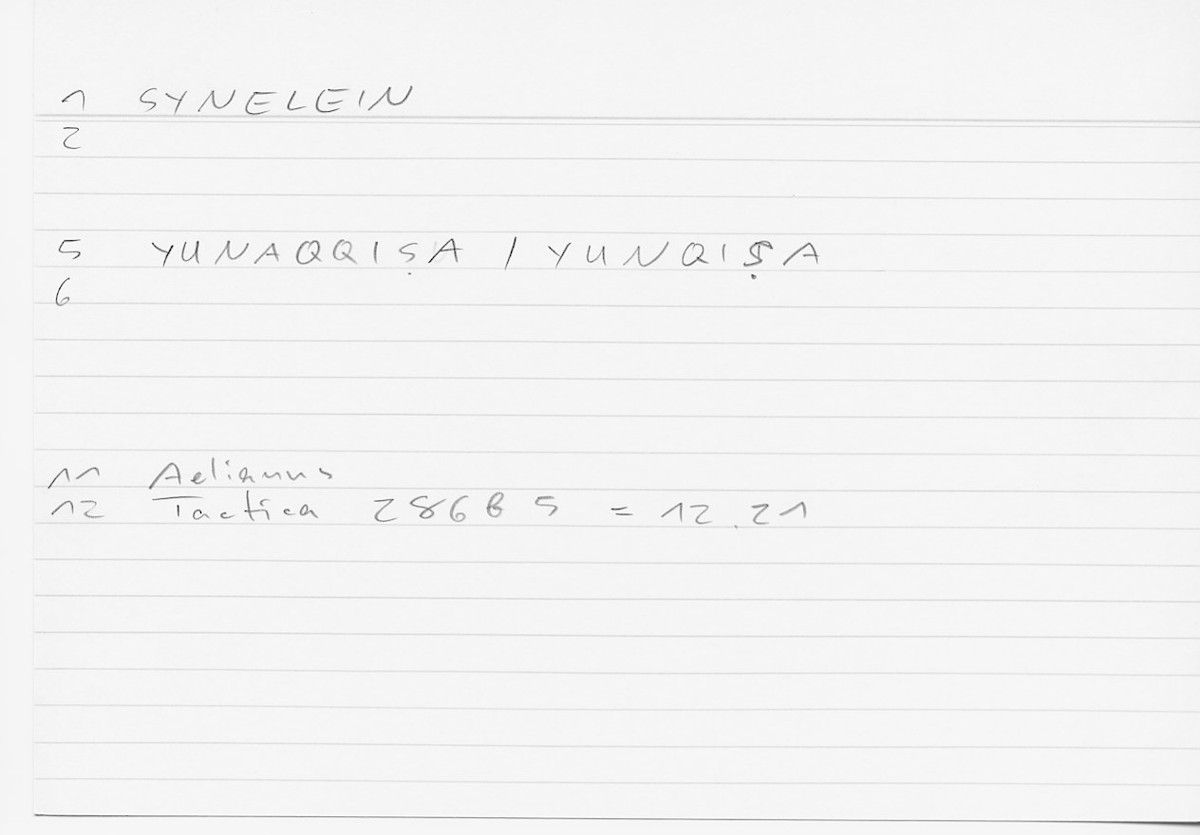 1 SYNELEIN
2
5 YUNAQQIṢA / YUNQIṢA
6
11 Aelianus
12 Tactica 286 B 5 = 12.21